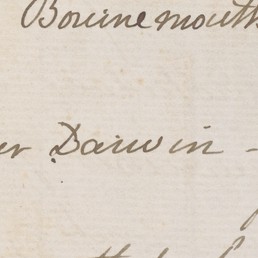 Bournemouth
er Darwin -